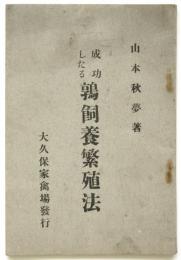 山本秋夢著
成功したる鶉飼養繁殖法
大久保家禽場發行